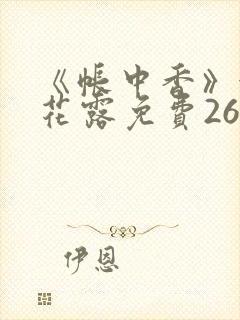 《帐中香》
花露免費26
伊恩